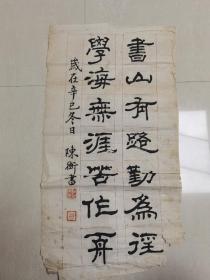 書山有路勤為徑
學海無涯苦作舟
歲在辛巳冬日 陳衛書